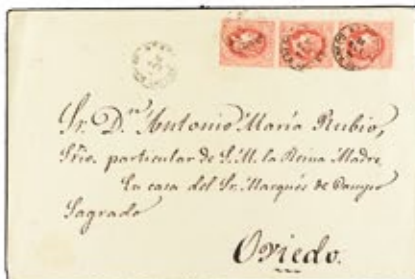 Sr. Dn. Antonio María Rubio,
Srio. particular de S. M. la Reina Madre
En casa del Sr. Marqués de Campo
Sagrado
Oviedo.